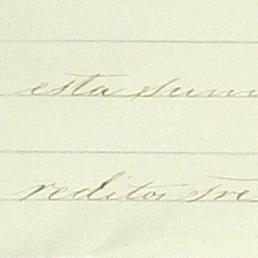 esta sum
reditos tre